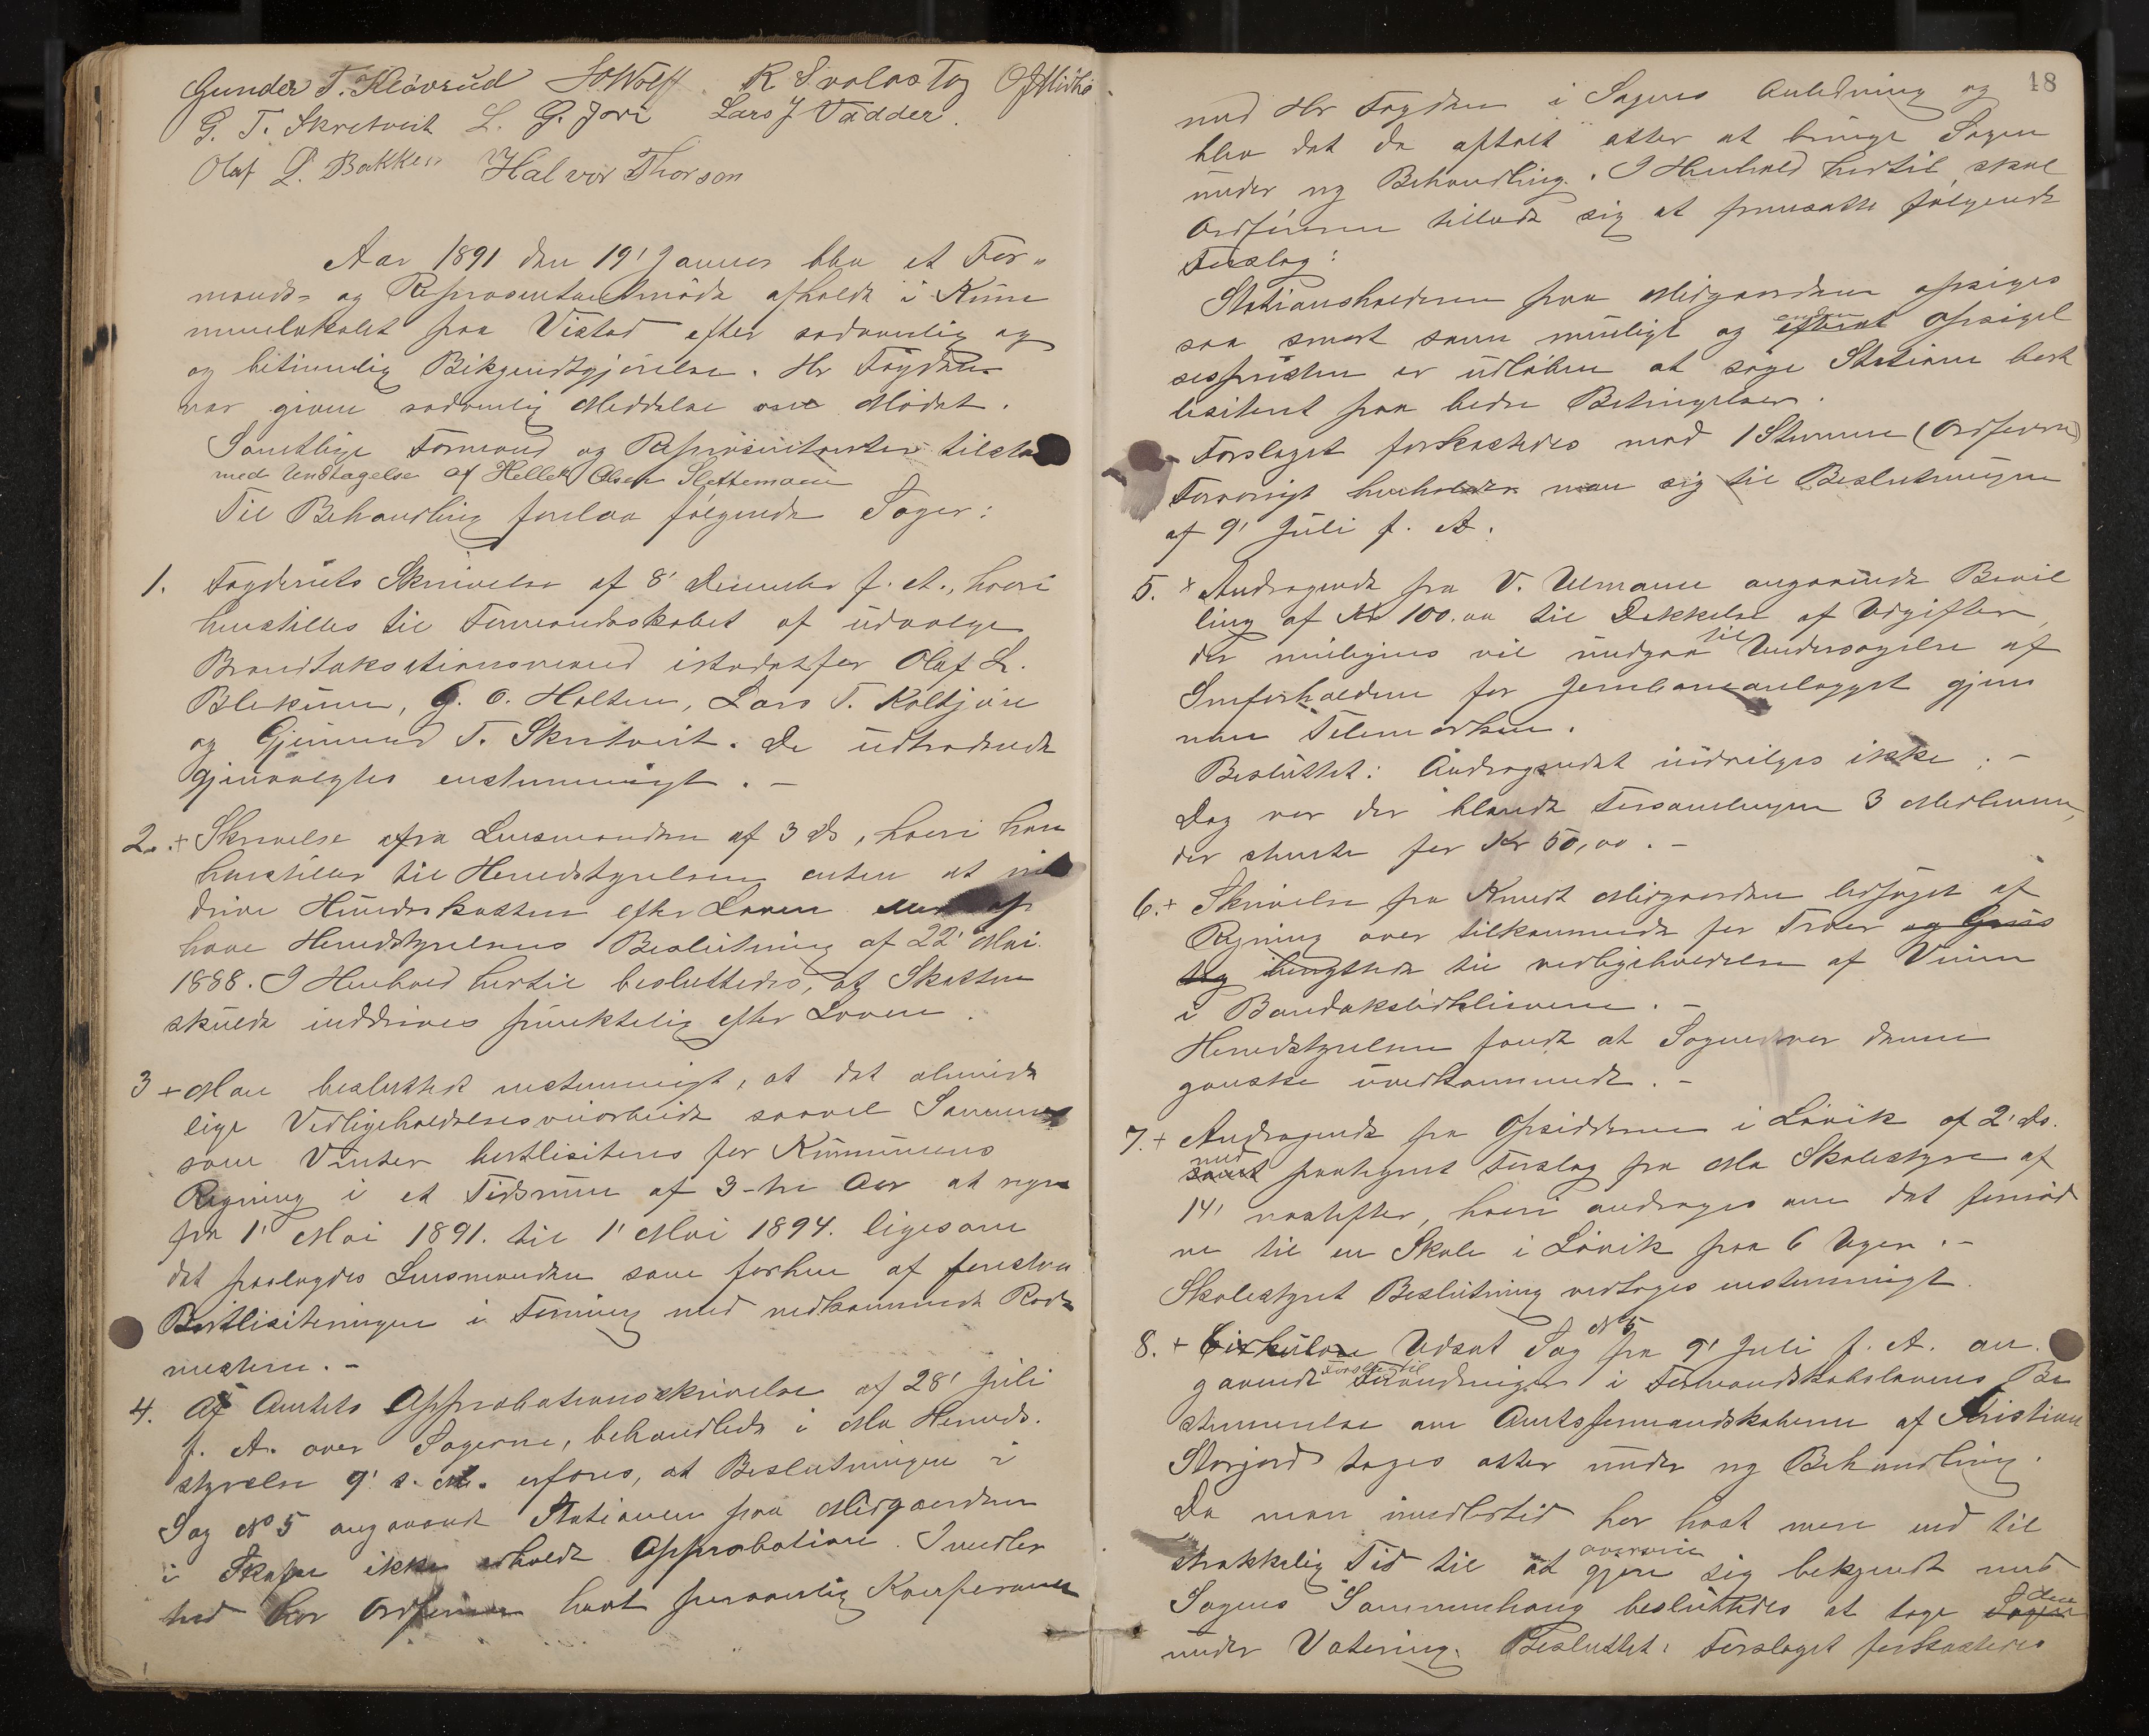 Gunder T. Kløvrud HWolff R Svalastog OJMidbø
G. T. Skretveit L. G. Jore Lars J Vadder.
Olaf L. Bakken Halvor Thorson
Aar 1891 den 19' Januar blev et For„
mands- og Repræsentantmøde afholdt i Kom
munelokalet paa Vistad efter sædvanlig og
og betimelig Bekjendtgjørelse. Hr Fogden
var given sædvanlig Meddelse om Mødet.
Samtlige Formænd og Repræsentanter tilstede
med Undtagelse af Hellek Olsen Slettemoen
Til Behandling forelaa følgende Sager:
1. Fogderiets Skrivelse af 8' December f. A., hvori
henstilles til Formandskabet at udvælge
Brandtaxationsmænd istedetfor Olaf L.
Blekum, G. O. Holten, Lars T. Roltjøre
og Gjermund T. Skretveit. De udtrædende
gjenvalgtes enstemmigt. -
2. + Skrivelse fra Lensmanden af 3 Ds, hvori han
henstiller til Herredstyrelsen enten at ind
drive Hundeskatten efter Loven eller op
hæve Herredstyrelsens Beslutning af 22' Mai
1888. I Henhold hertil besluttedes, at Skatten
skulde inddrives punktelig efter Loven.
3 + Man besluttede enstemmigt, at det alminde
lige Vedligeholdelsesveiarbeide saavel Sommer
som Vinter bortlisiteres for Kommunens
Regning i et Tidsrum af 3-tre Aar at regne
fra 1' Mai 1891. til 1' Mai 1894. ligesom
det paalagdes Lensmanden som forhen at forestaa
Bortlisiteringen i Forening med vedkommende Rode
mestere. -
4. Af Amtets Approbationsskrivelse af 28' Juli
f. A. over Sagerne, behandlede i Mo Herreds.
styrelse 9' s. M. erfares, at Beslutningen i
Sag No 5 angaaende Stationen paa Midgaarden
i Skafse ikke erholdt Approbation. Imidler
tid har Ordføreren havt personlig Konferanse
18
med Hr Fogden i Sagens Anledning og
blev det da aftalt atter at bringe Sagen
under ny Behandling. I Henhold hertil skal
Ordføreren tillade sig at fremsætte følgende
Forslag:
Stationsholderen paa Midgaarden opsiges
saa snart som muligt og endnu efterat Opsigel
sesfristen er udløben at søge Stationen bort
lisiteret paa bedre Betingelser.
Forslaget forkastedes mod 1 Stemme (Ordføreren)
Forøvrigt henholder man sig til Beslutningen
af 9' Juli f. A.
5. + Andragende fra V. Ulmann angaaende Bevil
ling af Kr 100.00 til Dækkelse af Udgifter,
der muligens vil medgaa til Undersøgelse af
Sneforholdene for Jernbaneanlægget gjen
nem Telemarken.
Besluttet: Andragendet indvilges ikke; -
Dog var der blandt Forsamlingen 3 Medlemmer,
der stemte for Kr 50,00. -
6. + Skrivelse fra Knudt Midgaarden ledsaget af
Regning over tilkommende for Træer og Grus
tag benyttede til vedligeholdelse af Veien
i Bandaksliderne. -
Herredstyrelsen fandt at Sagen var denne
ganske uvedkommende. -
7. + Andragende fra Opsidderne i Løvik af 2' ds.
samt med paategnet Forslag fra Mo Skolestyre af
14' næstefter, hvori andrages om det fornød
ne til en Skole i Løvik paa 6 Uger. -
Skolestyret Beslutning vedtoges enstemmigt.
8. + Cirkulære Udsat Sag No 5 fra 9' Juli f. A. an.
gaaende Forslag til Forandringer i Formandskabslovens Be
stemmelse om Amtsformandskaberne af Kristian
Storjord toges atter under ny Behandling.
Da man imidlertid har havt mere end til
strækkelig Tid til at overveie gjøre sig bekjendt med
Sagens Sammenhang besluttedes at tage Sagen den
under Votering. Besluttet: Forslaget forkastedes